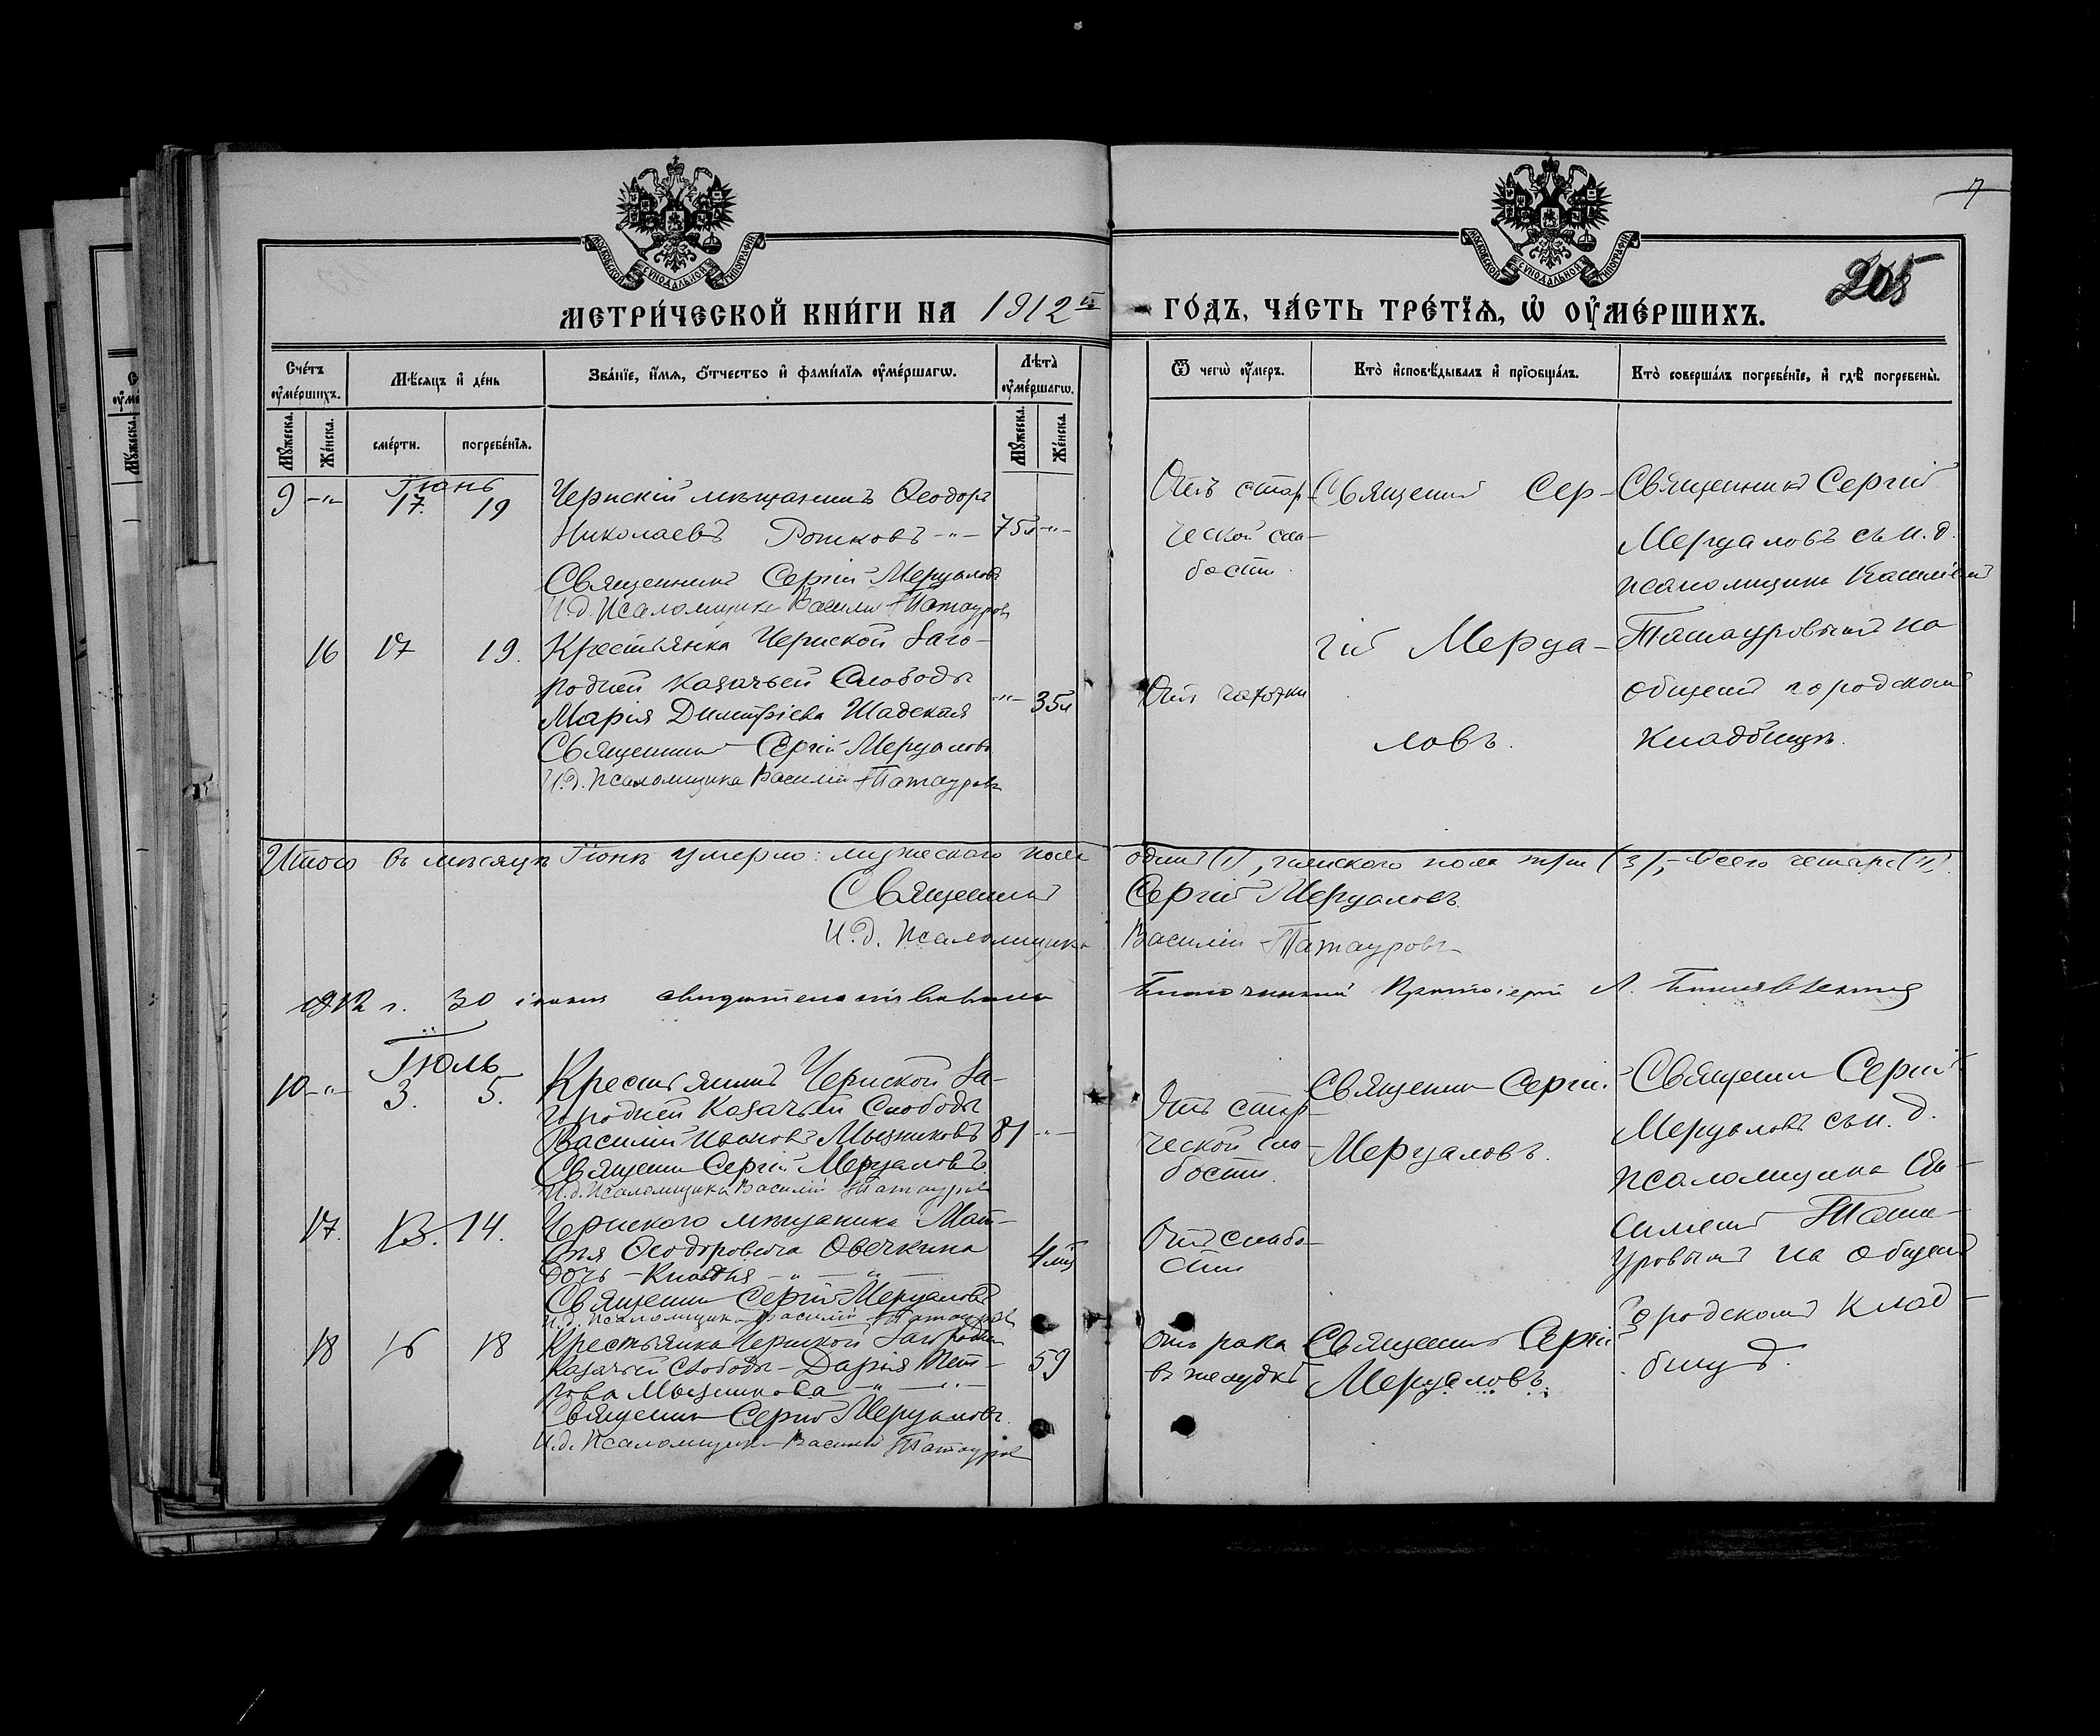 7
205
МЕТРИ́ЧЕСКОЙ КНИ́ГИ НА 1912й ГО́ДЪ, ЧА́СТЬ ТРЕ́ТЇѦ, Ѡ҆ ОУ҆МЕ́РШИХЪ.
Сче́тъ оу҆ме́ршихъ.
Мѣ́сѧцъ и҆ де́нь
Зва́нїе, и҆́мѧ, ѻ҆́тчество и҆ фами́лїѧ оу҆ме́ршагѡ.
Лѣ̀та оу҆ме́ршагѡ.
Ѿ чегѡ̀ оу҆́меръ.
Кто̀ и҆сповѣ́дывалъ и҆ прїѡбща́лъ.
Кто̀ соверша́лъ погребе́нїе, и҆ гдѣ̀ погребены̀.
Мꙋ́жеска.
Же́нска.
сме́рти.
погребе́нїѧ.
Мꙋ́жеска.
Же́нска.
Іюнь
9 -"- 17. 19
Чернскій мѣщанинъ Ѳеодоръ
Николаевъ Рошковъ -"- 75л -"-
Священникъ Сергій Мерцаловъ
И.д. Псаломщика Василій Татауровъ
Отъ стар-
ческой сла-
бости.
Священникъ Сер-
гій Мерца-
ловъ.
Священникъ Сергій
Мерцаловъ съ и.д.
псаломщика Василіемъ
Татауровымъ на
общемъ городскомъ
кладбищѣ.
16 17 19.
Крестьянка Чернской Заго-
родней Казачьей Слободы
Марія Димитріева Шадская -"- 35л
Священникъ Сергій Мерцаловъ
И.д. Псаломщика Василій Татауровъ
Отъ чахотки
Итого въ мѣсяцѣ Іюнѣ умерло: мужескаго пола одинъ (1), женскаго пола три (3), всего четыре (4).
Священникъ Сергій Мерцаловъ.
И.д. Псаломщика Василій Татауровъ
1912 г. 30 іюня свидѣтельствовалъ Благочинный Протоіерей
Іюль
10 -"- 3. 5.
Крестьянинъ Чернской За-
городней Казачьей Слободы
Василій Ивановъ Мызниковъ 81 -"-
Священникъ Сергій Мерцаловъ.
И.д. Псаломщика Василій Татауровъ
Отъ стар-
ческой сла-
бости.
Священникъ Сергій
Мерцаловъ.
Священникъ Сергій
Мерцаловъ съ и.д.
псаломщика Ва-
силіемъ Тата-
уровымъ на общемъ
городскомъ клад-
бищѣ.
17. 13. 14.
Чернскаго мѣщанина Мат-
вія Ѳеодоровича Овечкина
дочь - Клавдія -"- -"- 4 мѣс
Священникъ Сергій Мерцаловъ
И.д. Псаломщика Василій Татауровъ
Отъ слабо-
сти
18 16 18
Крестьянка Чернской Загородн.
Казачьей Слободы - Дарія Пет-
рова Мызникова -"- -"- 59
Священникъ Сергій Мерцаловъ.
И.д. Псаломщика Василій Татауровъ
Отъ рака
въ желудкѣ
Священникъ Сергій
Мерцаловъ.